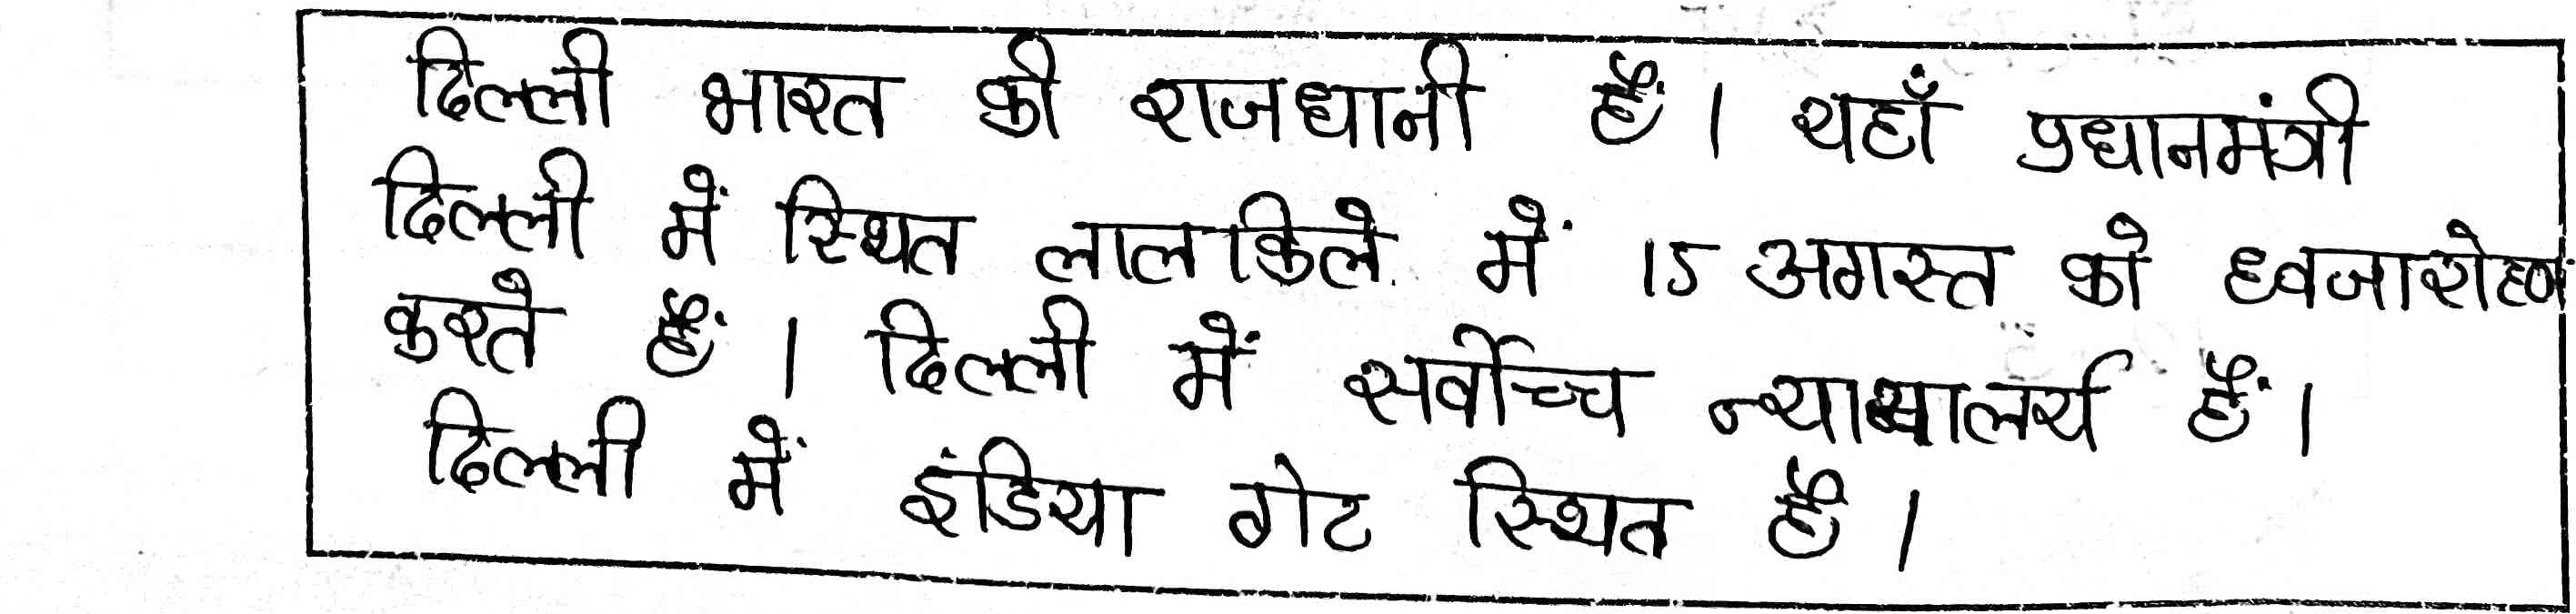 दिल्ली भारत की राजधानी हैं। यहाँ प्रधानमंत्री
दिल्ली में स्थित लालकिले में 15 अगस्त को ध्वजारोहण
करते हैं। दिल्ली में सर्वोच्च न्यायालय हैं।
दिल्ली में इंडिया गेट स्थित है।